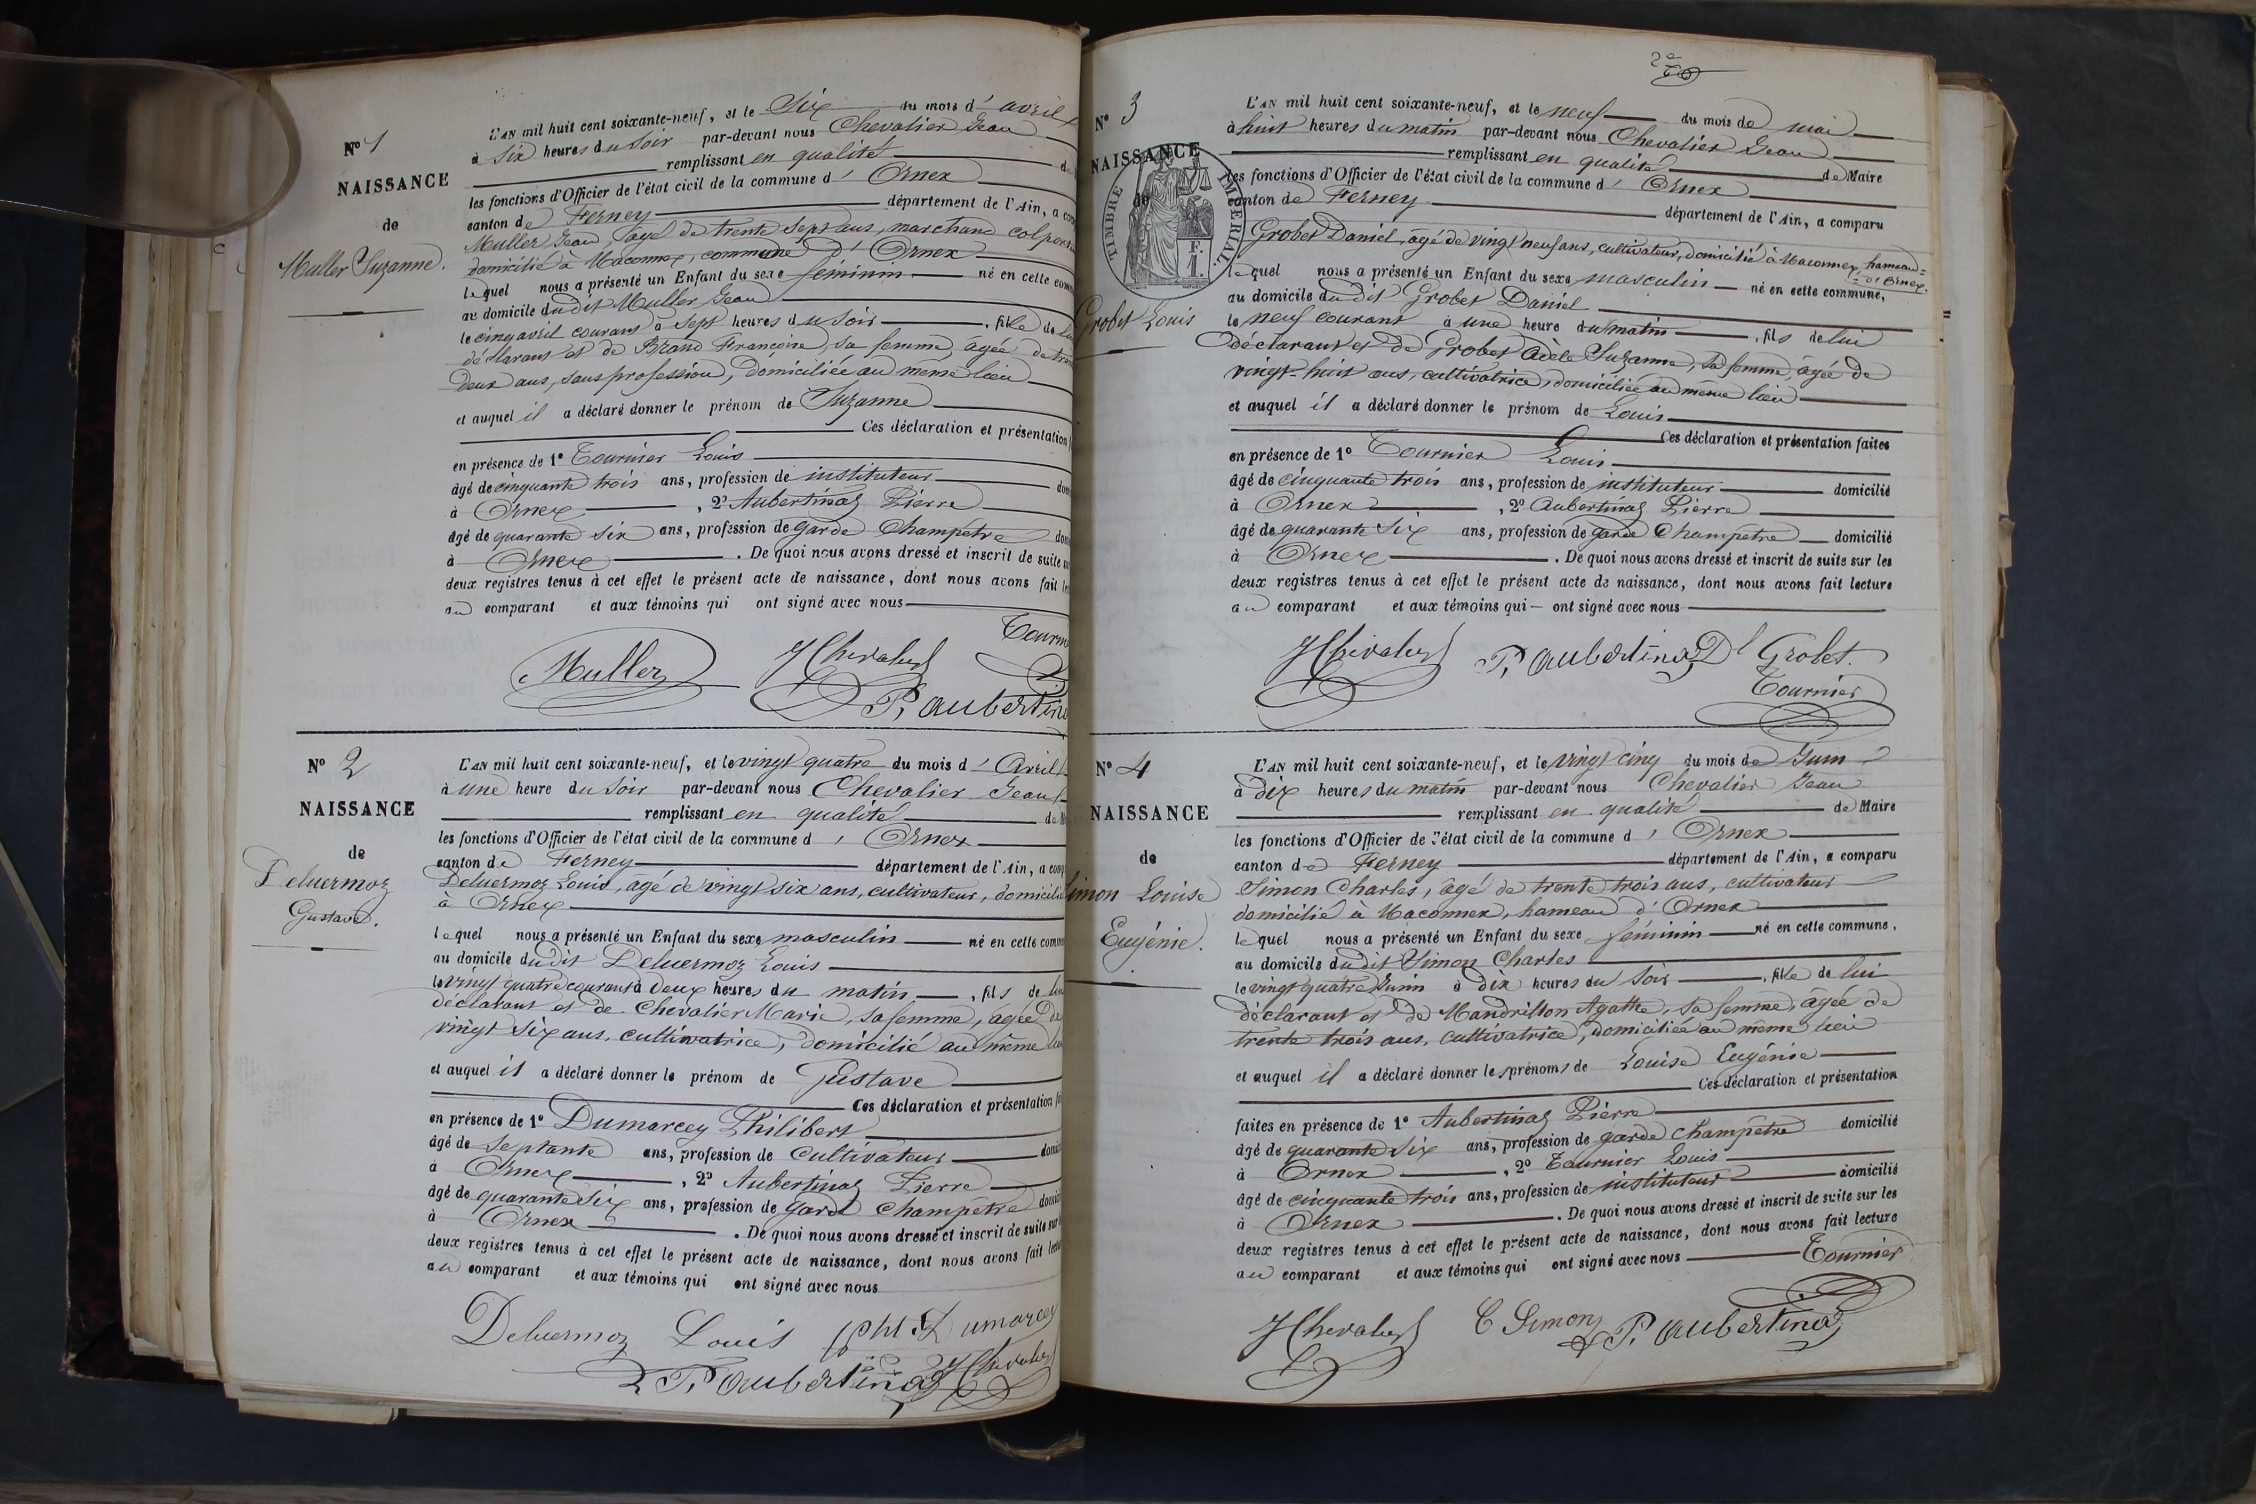 N° 1
NAISSANCE
de
Muller Suzanne.
L'AN mil huit cent soixante-neuf, et le Six du mois d' avril
à six heures du soir par-devant nous Chevalier Jean
remplissant en qualité d
les fonctions d'Officier de l'état civil de la commune d' Ornex
canton de Ferney département de l'Ain, a com
Muller Jean, âgé de trente sept ans, marchand colport
domicilié à Maconnex, commune d' Ornex
lequel nous a présenté un Enfant du sexe féminin né en cette comm
au domicile dudit Muller Jean
le cinq avril courant à sept heures du soir, fille de lui
déclarant et de Brand Françoise, sa femme, âgée de trente
deux ans, sans profession, domiciliée au même lieu
et auquel il a déclaré donner le prénom de Suzanne
Ces déclaration et présentation f
en présence de 1° Tournier Louis
âgé de cinquante trois ans, profession de instituteur dom
à Ornex, 2° Aubertinaz Pierre
âgé de quarante six ans, profession de garde champêtre dom
à Ornex. De quoi nous avons dressé et inscrit de suite su
deux registres tenus à cet effet le présent acte de naissance, dont nous avons fait lec
au comparant et aux témoins qui ont signé avec nous
Tourni
Muller JChevalier
P. aubertina
N° 2
NAISSANCE
de
Deluermoz
Gustave.
L'AN mil huit cent soixante-neuf, et le vingt quatre du mois d' Avril
à une heure du soir par-devant nous Chevalier Jean
remplissant en qualité de M
les fonctions d'Officier de l'état civil de la commune d' Ornex
canton de Ferney département de l'Ain, a comp
Deluermoz Louis, âgé de vingt six ans, cultivateur, domicilié
à Ornex
lequel nous a présenté un Enfant du sexe masculin né en cette commu
au domicile dudit Deluermoz Louis
le vingt quatre courant à deux heures du matin, fils de lui
déclarant et de Chevalier Marie, sa femme, âgée de
vingt six ans, cultivatrice, domicilié au même lieu
et auquel il a déclaré donner le prénom de Gustave
Ces déclaration et présentation fai
en présence de 1° Dumarcey Philibert
âgé de septante ans, profession de cultivateur domici
à Ornex, 2° Aubertinaz Pierre
âgé de quarante six ans, profession de garde champêtre domici
à Ornex. De quoi nous avons dressé et inscrit de suite sur
deux registres tenus à cet effet le présent acte de naissance, dont nous avons fait lectu
au comparant et aux témoins qui ont signé avec nous
Deluermoz Louis pht Dumarcey
P. aubertinaz JChevalier
2e
N° 3
NAISSANCE
de
TIMBRE IMPERIAL.
Grobet Louis
L'AN mil huit cent soixante-neuf, et le neuf du mois de mai
à huit heures du matin par-devant nous Chevalier Jean
remplissant en qualité de Maire
les fonctions d'Officier de l'état civil de la commune d' Ornex
canton de Ferney département de l'Ain, a comparu
Grobet Daniel, âgé de vingt neuf ans, cultivateur, domicilié à Maconnex, hameau=
=d'Ornex.
lequel nous a présenté un Enfant du sexe masculin né en cette commune,
au domicile dudit Grobet Daniel
le neuf courant à une heure du matin, fils de lui
déclarant et de Grobet Adèle Suzanne, sa femme, âgée de
vingt-huit ans, cultivatrice, domiciliée au même lieu
et auquel il a déclaré donner le prénom de Louis
Ces déclaration et présentation faites
en présence de 1° Tournier Louis
âgé de cinquante trois ans, profession de instituteur domicilié
à Ornex, 2° Aubertinaz Pierre
âgé de quarante six ans, profession de garde champêtre domicilié
à Ornex. De quoi nous avons dressé et inscrit de suite sur les
deux registres tenus à cet effet le présent acte de naissance, dont nous avons fait lecture
au comparant et aux témoins qui ont signé avec nous
JChevalier P. aubertinaz Dl Grobet.
Tournier
N° 4
NAISSANCE
de
Simon Louise
Eugénie.
L'AN mil huit cent soixante-neuf, et le vingt cinq du mois de Juin
à dix heures du matin par-devant nous Chevalier Jean
remplissant en qualité de Maire
les fonctions d'Officier de l'état civil de la commune d' Ornex
canton de Ferney département de l'Ain, a comparu
Simon Charles, âgé de trente trois ans, cultivateur
domicilié à Maconnex, hameau d'Ornex
lequel nous a présenté un Enfant du sexe féminin né en cette commune,
au domicile dudit Simon Charles
le vingt quatre Juin à dix heures du soir, fille de lui
déclarant et de Mandrillon Agathe, sa femme, âgée de
trente trois ans, cultivatrice, domiciliée au même lieu
et auquel il a déclaré donner les prénoms de Louise Eugénie
Ces déclaration et présentation
faites en présence de 1° Aubertinaz Pierre
âgé de quarante six ans, profession de garde champêtre domicilié
à Ornex, 2° Tournier Louis
âgé de cinquante trois ans, profession de instituteur domicilié
à Ornex. De quoi nous avons dressé et inscrit de suite sur les
deux registres tenus à cet effet le présent acte de naissance, dont nous avons fait lecture
au comparant et aux témoins qui ont signé avec nous Tournier
JChevalier C Simon P. aubertinaz